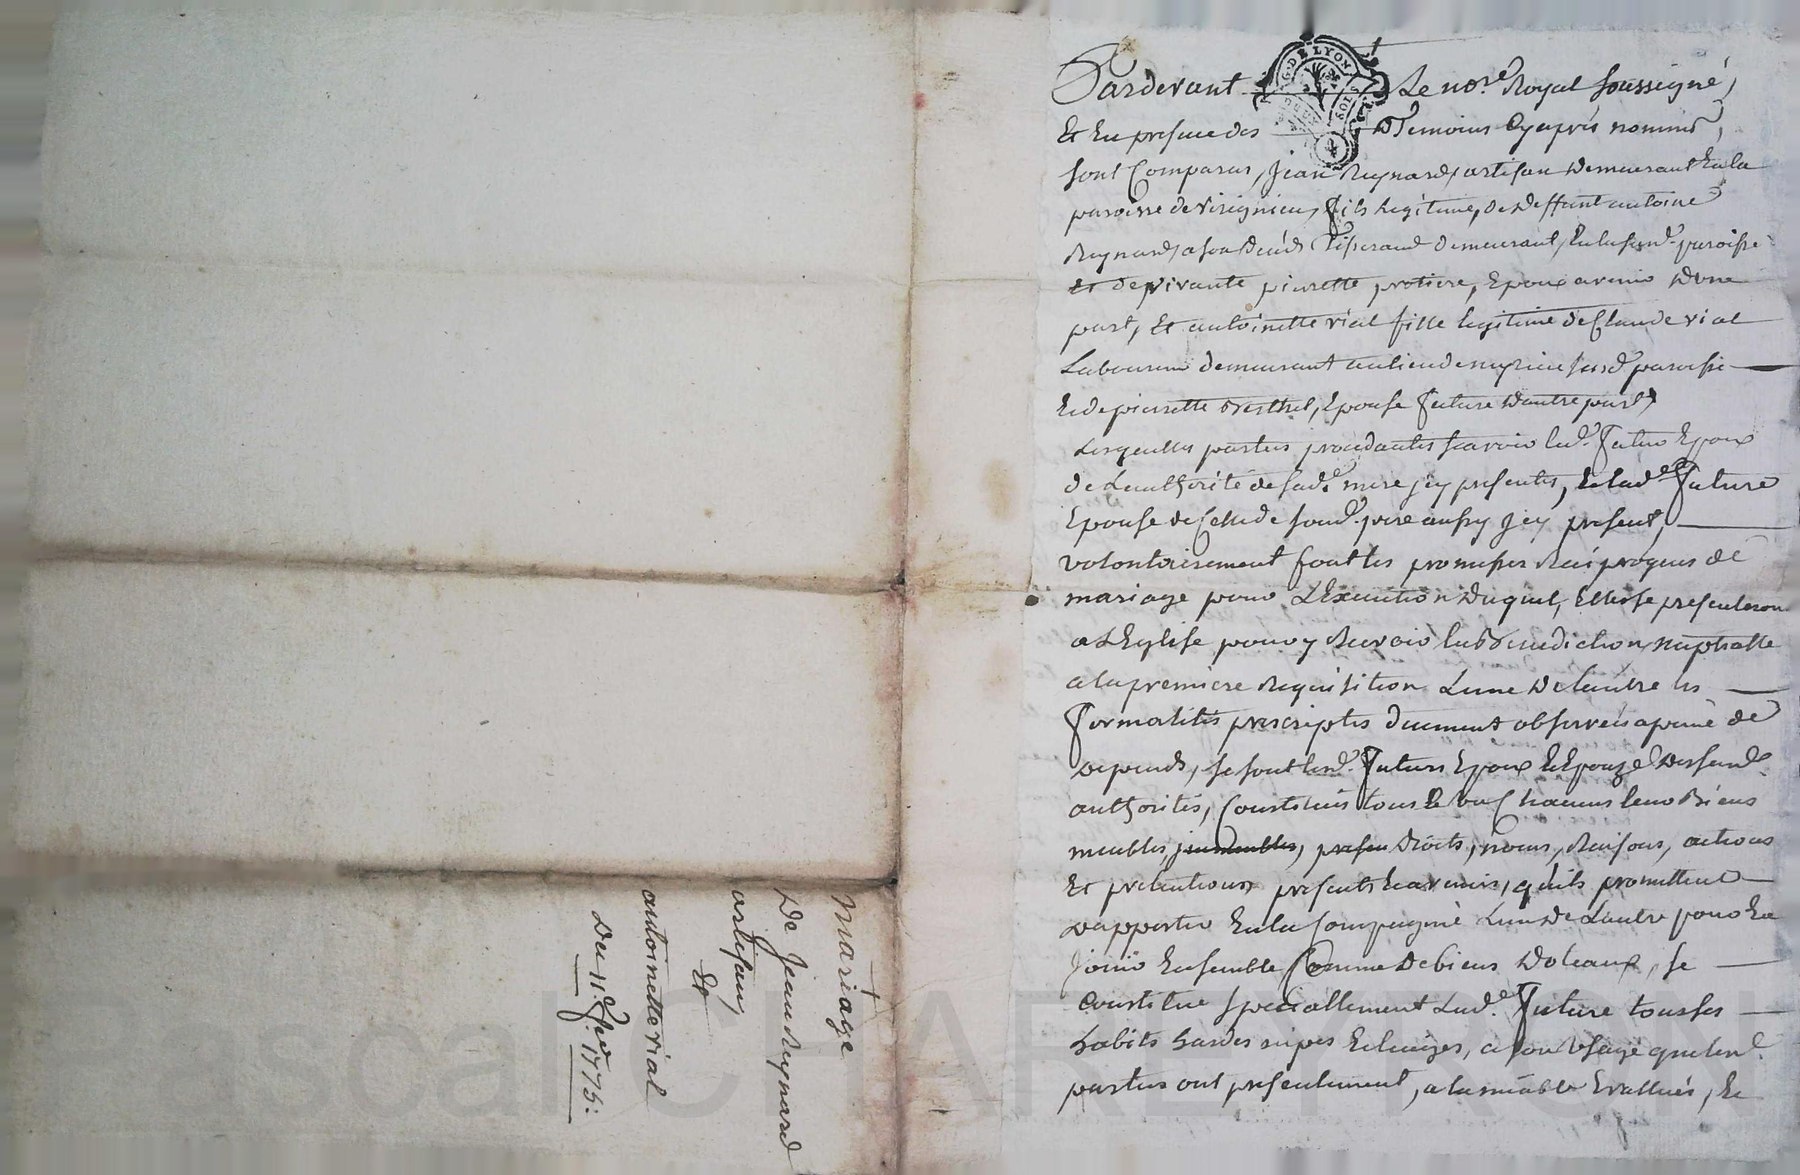 Pardevant Le no.re Royal soussigné,
Et En presence des Temoins Cyaprés nommés,
sont Comparus, Jean Reynard, artisan Demeurant En la
paroisse de Virignieu, fils legitime, de deffunt antoine
Reynard, a son Decés Tisserand demeurant, En la susd.e paroisse
et de vivante pierrette protiere, Epoux avenir Dune
part, Et antoinette vial fille legitime de Claude vial
Laboureur demeurant au lieu de susd.e paroisse
Et de pierrette Epouse future Dautre part,
Lesquelles parties procedantes scavoir led. futur Epoux
de Lauthorité de sad.e mere jcy presente, Et lad.e future
Epouse de Celle de sond. pere aussy jcy present,
volontairement font les promesses Reciproques de
mariage pour LExecution Duquel, Elles se presenteron
a LEglise pour y Recevoir la Benediction Nuptialle
a la premiere Requisition Lune De lautre les
formalités prescriptes duement observées a peine de
Depends, se sont lesd. futurs Epoux Et Epouze Des susd.
authorités, Constitués tous Et un Chacuns leurs Biens
meubles, jmmeubles, presen Droits, noms, Raisons, actions
Et pretentions presents Et avenir, quils promettent
Dapporter En la Compagnie Lun De Lautre pour En
Jouir Ensemble Comme De biens Doteaux, se
Constitue speciallement Lad.e future tous ses
habits hardes nipes Et linges, a son Usage que lesd.
parties ont presentement, a lamiable Evallués, Et
Mariage
De Jean Reynard
artisan,
Et
antoinette vial
Du 11e 1775:
LYON
CHAREYRON